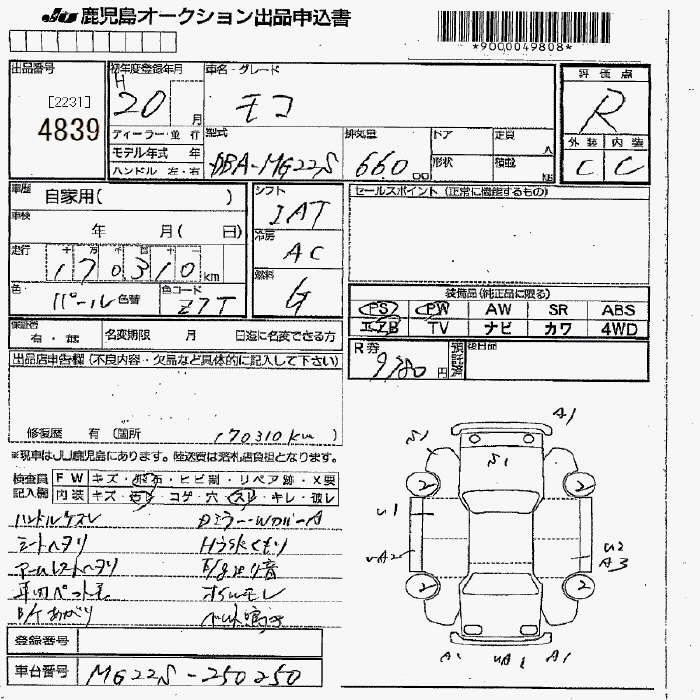 JU 鹿児島オークション出品申込書
*9000049808*
出品番号
[2231]
4839
初年度登録年月
H
20 月
ディーラー・並行
モデル年式 年
ハンドル 左・右
車名・グレード
モコ
型式
DBA-MG22S
排気量
660 cc
ドア
定員
人
形状
積載
kg
評価点
R
外装 内装
C C
車歴
自家用( )
車検
年 月( 日)
走行
十 万 千 百 十 一
170310 km
色
パール 色替
色コード
Z7T
シフト
IAT
冷房
AC
燃料
G
セールスポイント(正常に機能するもの)
装備品(純正品に限る)
PS PW AW SR ABS
エアB TV ナビ カワ 4WD
保証書
有・無
名変期限 月 日迄に名変できる方
R券
9,780 円
預託済
後日品
出品店申告欄(不良内容・欠品など具体的に記入して下さい)
修復歴 有(箇所 170310km )
※現車はJU鹿児島にあります。陸送費は落札店負担となります。
検査員
記入欄
FW キズ・飛石・ヒビ割・リペア跡・X要
内装 キズ・汚レ・コゲ・穴・スレ・キレ・破レ
ハンドルケスレ
シートヘタリ
アームレストヘタリ
車内ペット毛
Dミラー・WカバーA
Hライトくもり
オイルモレ
登録番号
車台番号
MG22S-250250
A1
S1
S1
2
2
U1
UA2
U2
A3
2
2
A1
UA1
A1